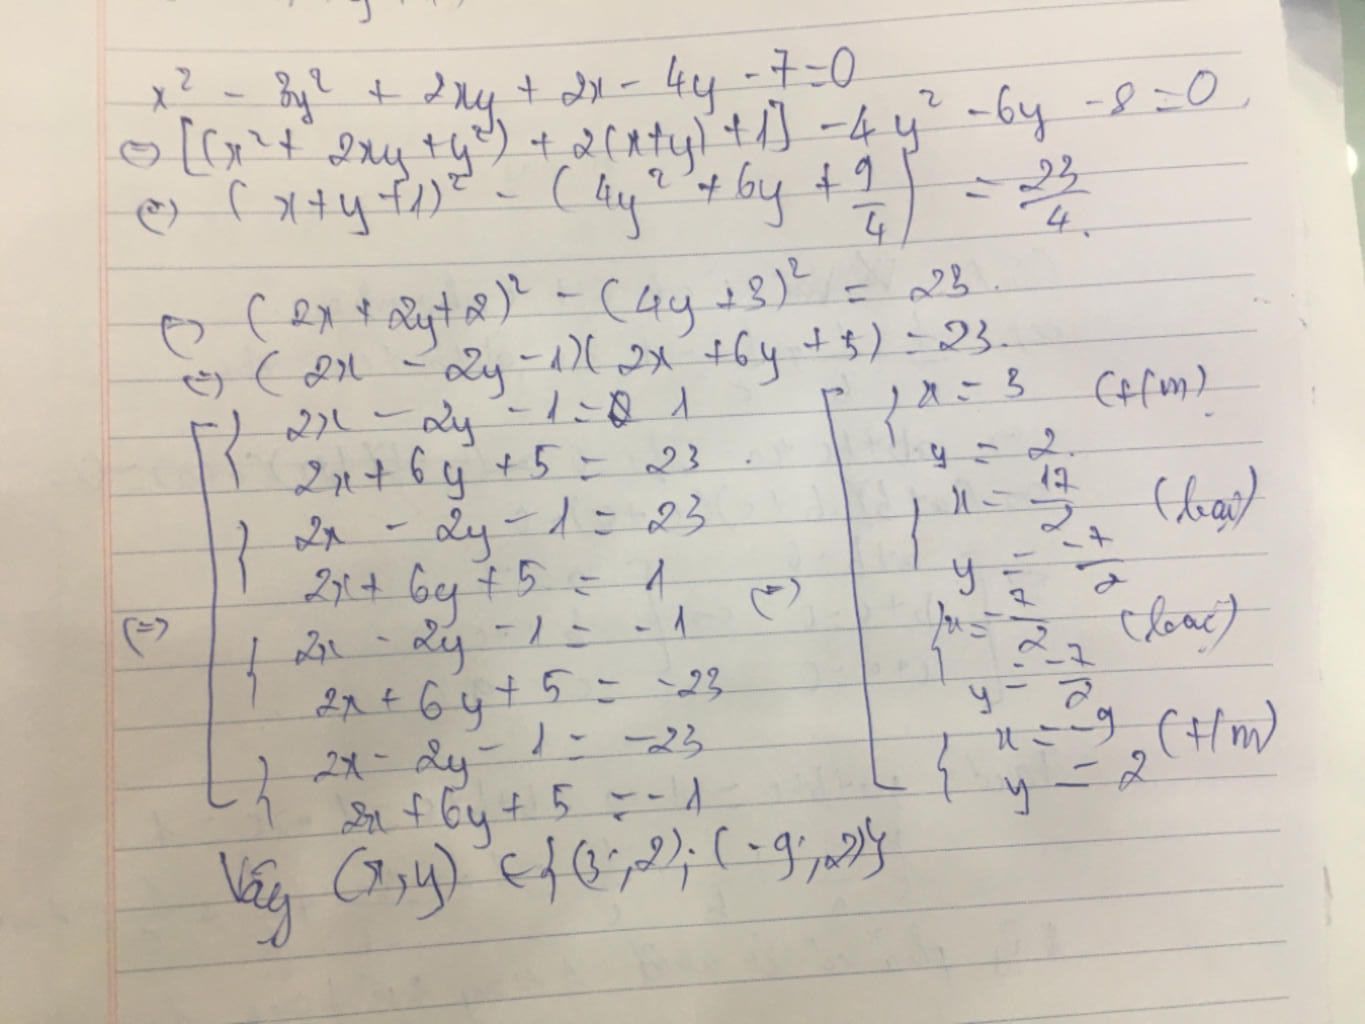 x² - 3y² + 2xy + 2x - 4y - 7 = 0
⇔ [(x² + 2xy + y²) + 2(x+y) + 1] - 4y² - 6y - 8 = 0
⇔ (x + y + 1)² - (4y² + 6y + 9/4) = 23/4.
⇔ (2x + 2y + 2)² - (4y + 3)² = 23.
⇔ (2x - 2y - 1)(2x + 6y + 5) = 23.
2x - 2y - 1 = 1
2x + 6y + 5 = 23
2x - 2y - 1 = 23
2x + 6y + 5 = 1
⇔
2x - 2y - 1 = -1
2x + 6y + 5 = -23
2x - 2y - 1 = -23
2x + 6y + 5 = -1
⇔
x = 3 (t/m)
y = 2.
x = 17/2 (loại)
y = -7/2
x = -7/2 (loại)
y = -7/2
x = -9 (t/m)
y = 2
Vậy (x,y) ∈ {(3;2); (-9;2)}